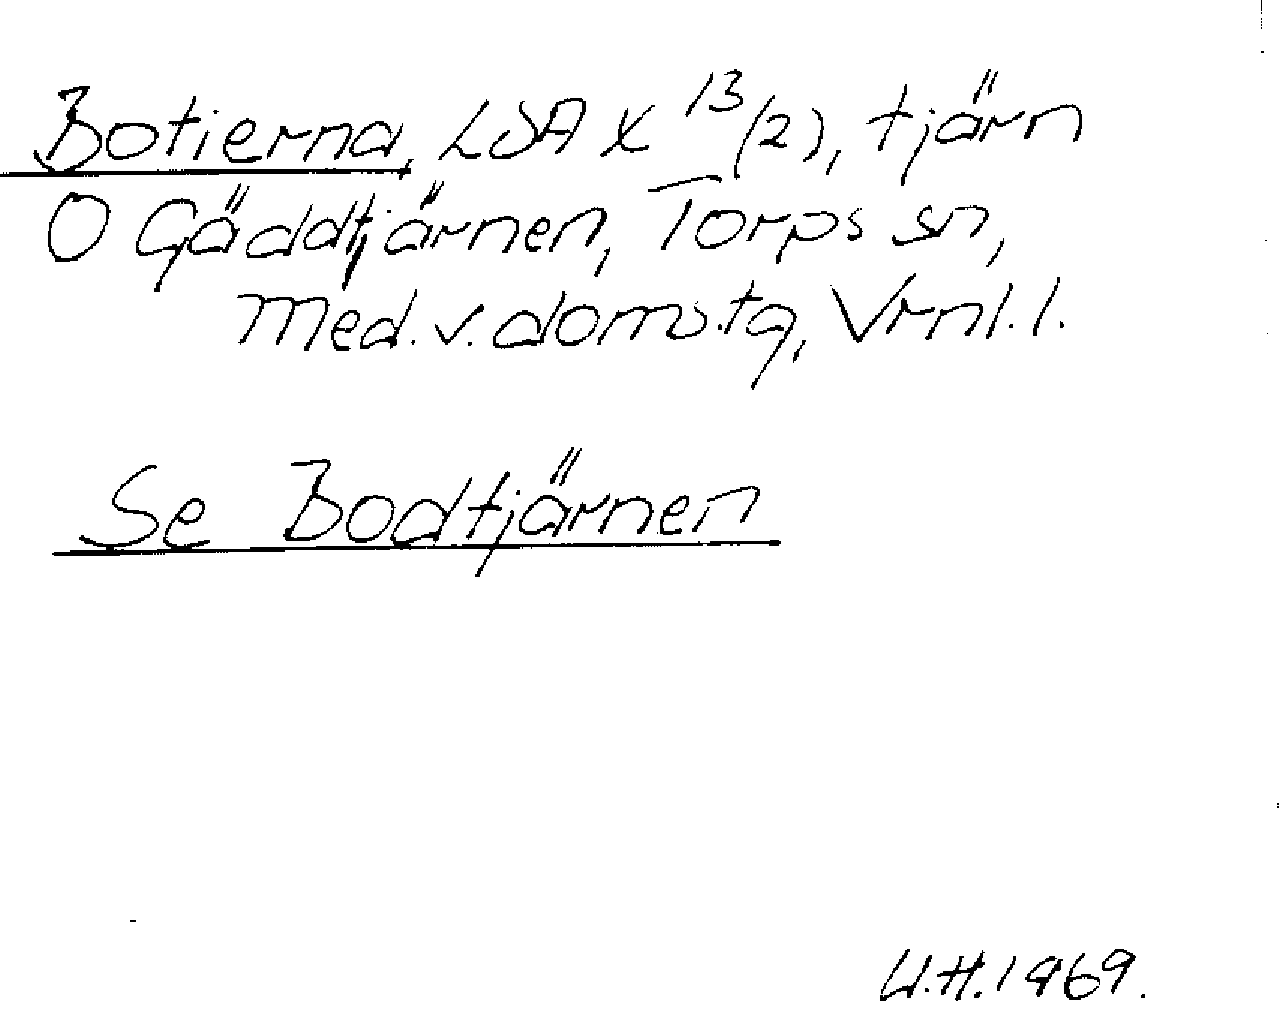 Botierna, LSA X 13/(2), tjärn
O Gäddtjärnen, Torps sn,
Med. v. doms.tg, Vrml. l.
Se Bodtjärnen
U.H. 1969.